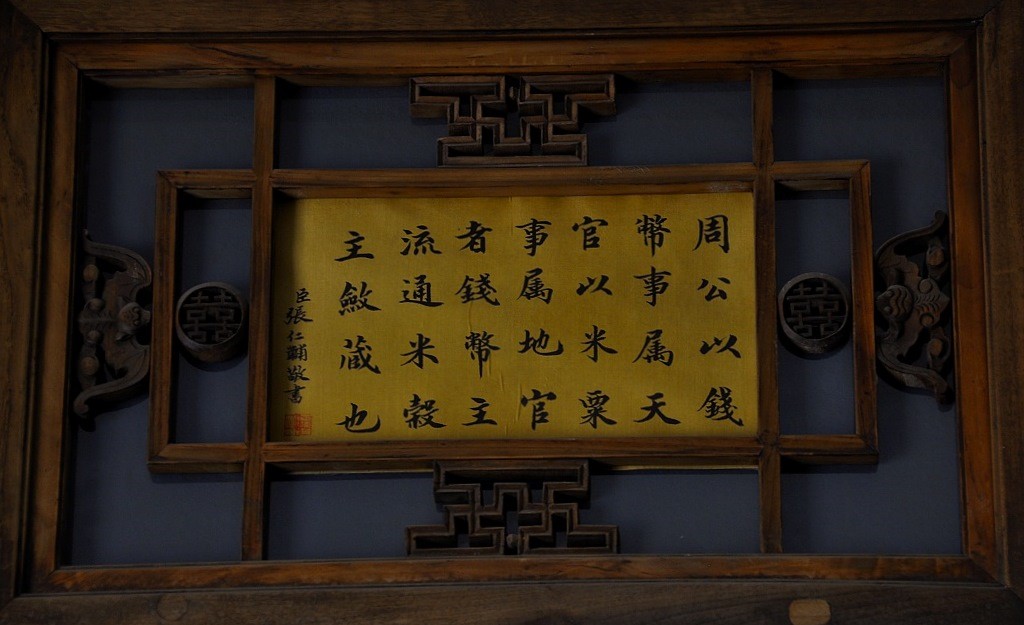 周公以錢
幣事属天
官以米粟
事属地官
者錢幣主
流通米穀
主斂蔵也
臣張仁黼敬書